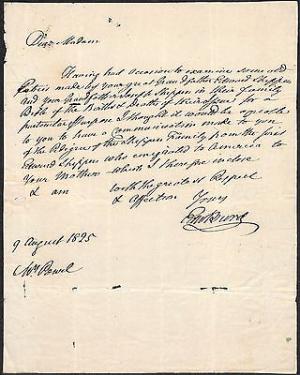 Dear Madam
Having had occasion to examine some old
Entries made by your great Grandfather Edward Shippen
and your Grandfather Joseph Shippen in their Family
Bible of the Births & Deaths of
particular Purpose I thought it would be agreeable
to you to have a Communication made to you
of the Pedigree of the Shippen Family from the first
Edward Shippen who emigrated to America to
Your Mother which I therefore inclose
& am with the greatest Respect
& Affection
Yours
9 August 1825
Mrs Powel